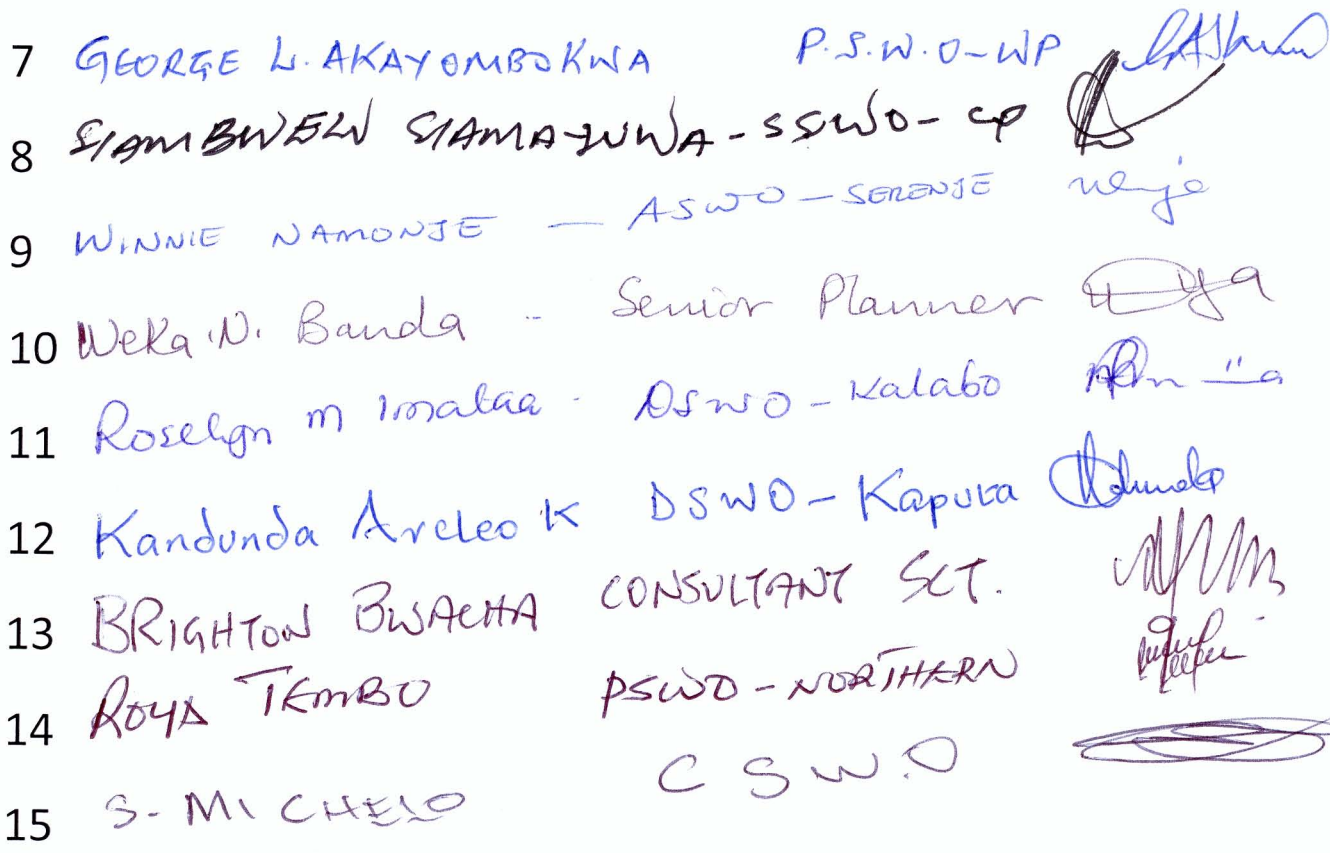 7 GEORGE L. AKAYOMBOKWA P.S.W.O-WP
8 SIAMBWELW SIAMA-JUWA-SSWO-CP
9 WINNIE NAMONJE — ASWO-SERENJE
10 Weka .N. Banda - Senior Planner
11 Roselyn M Imataa - DSWO-Kalabo
12 Kandunda Arcleo K DSWO-Kaputa
13 BRIGHTON BWACHA CONSULTANT SCT.
14 ROYD TEMBO PSWO-NORTHERN
15 S-MICHELO C S W.O